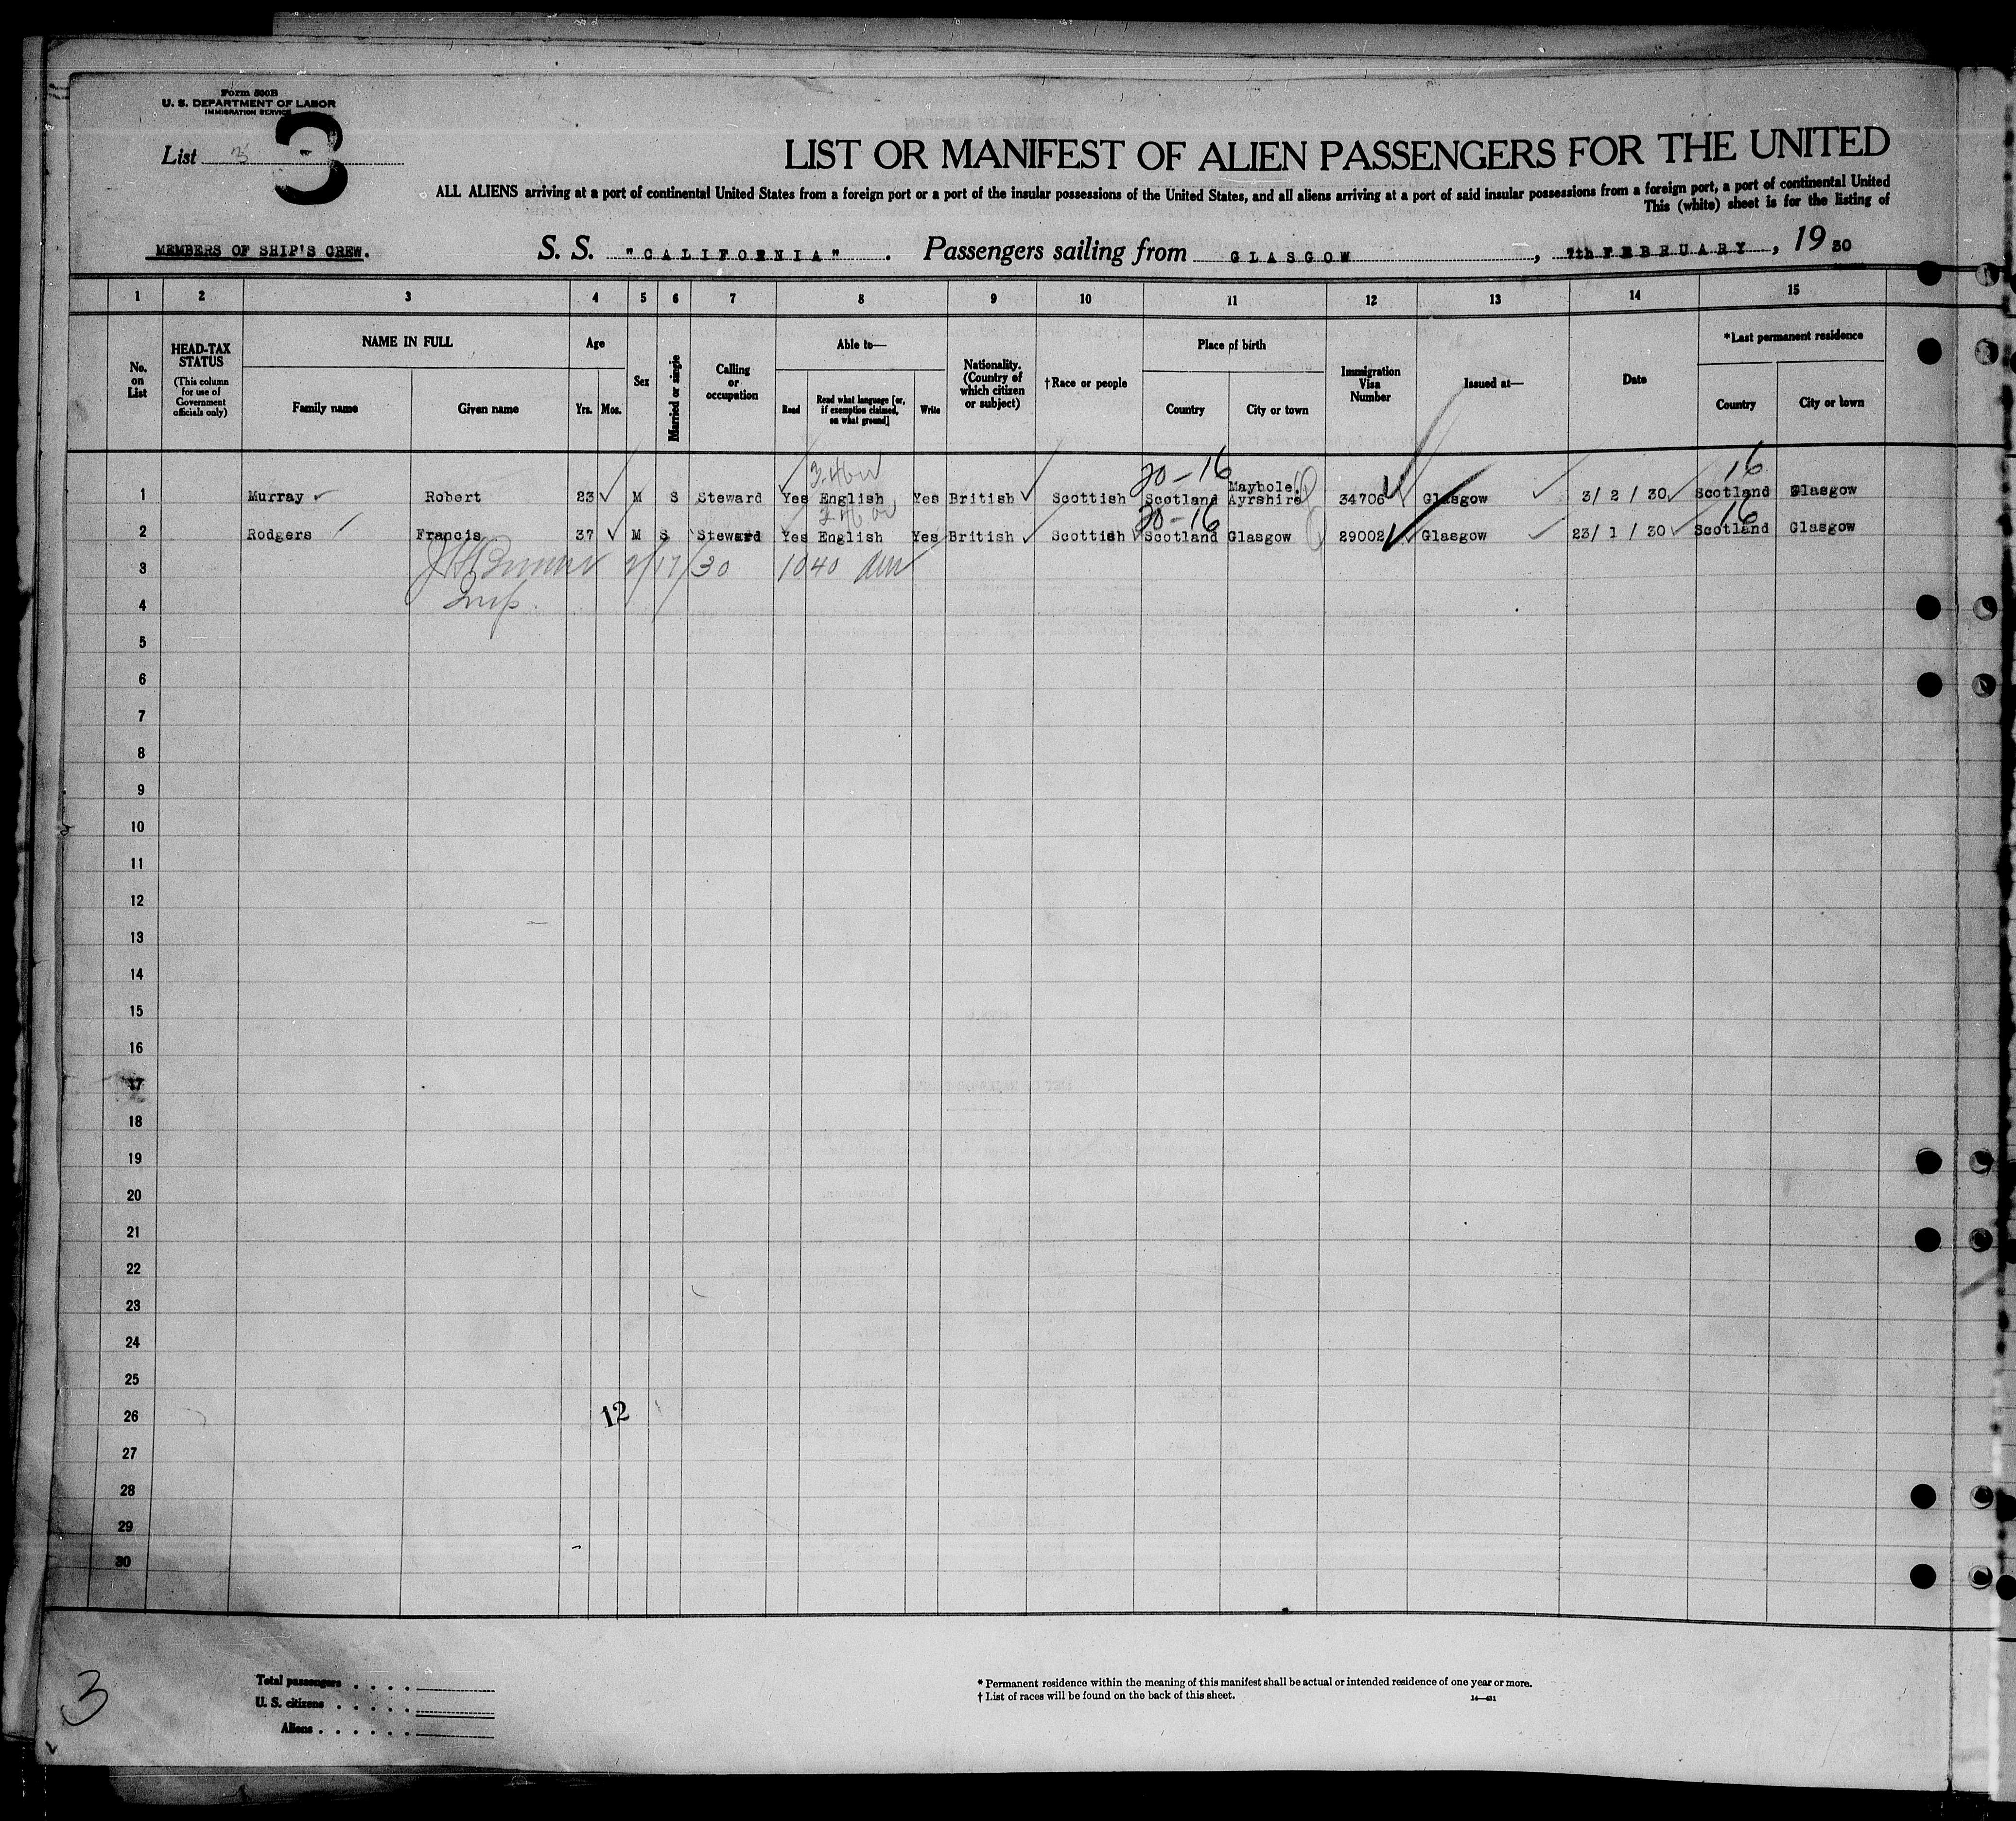 Form 500B
U. S. DEPARTMENT OF LABOR
IMMIGRATION SERVICE
List 3
3
LIST OR MANIFEST OF ALIEN PASSENGERS FOR THE UNITED
ALL ALIENS arriving at a port of continental United States from a foreign port or a port of the insular possessions of the United States, and all aliens arriving at a port of said insular possessions from a foreign port, a port of continental United
This (white) sheet is for the listing of
MEMBERS OF SHIP'S CREW. S. S. "CALIFORNIA". Passengers sailing from GLASGOW, 7th FEBRUARY, 1930
1 2 3 4 5 6 7 8 9 10 11 12 13 14 15
No. on List
HEAD-TAX STATUS
(This column for use of Government officials only)
NAME IN FULL
Family name Given name
Age
Yrs. Mos.
Sex
Married or single
Calling or occupation
Able to—
Read
Read what language [or, if exemption claimed, on what ground]
Write
Nationality. (Country of which citizen or subject)
†Race or people
Place of birth
Country City or town
Immigration Visa Number
Issued at—
Date
*Last permanent residence
Country City or town
20-16 16
1 Murray Robert 23 M S Steward Yes English Yes British Scottish Scotland Maybole, Ayrshire 34706 Glasgow 3/ 2 / 30 Scotland Glasgow
20-16 16
2 Rodgers Francis 37 M S Steward Yes English Yes British Scottish Scotland Glasgow 29002 Glasgow 23/ 1 / 30 Scotland Glasgow
3 2/17/30 1040 am
4 Insp.
5
6
7
8
9
10
11
12
13
14
15
16
17
18
19
20
21
22
23
24
25
26 12
27
28
29
30
3
Total passengers
U. S. citizens
Aliens
* Permanent residence within the meaning of this manifest shall be actual or intended residence of one year or more.
† List of races will be found on the back of this sheet.